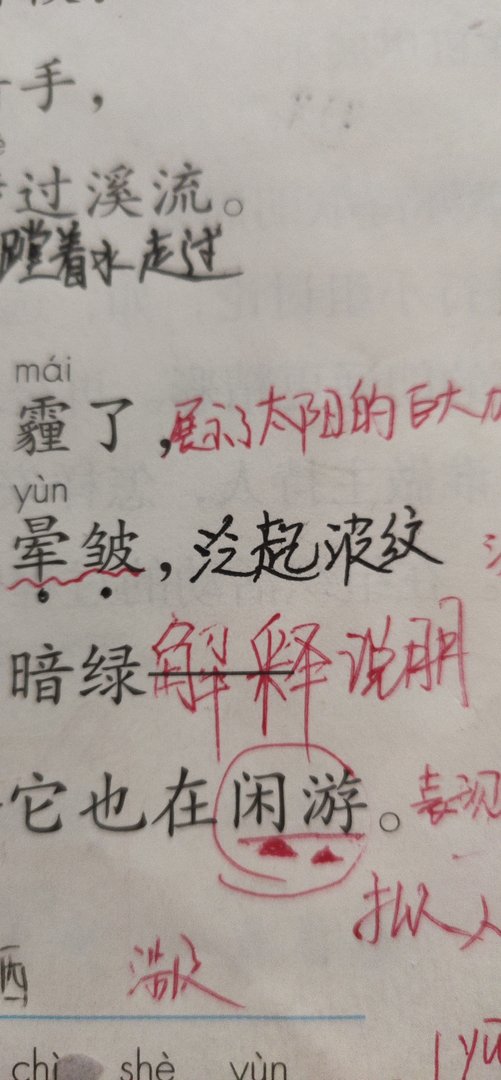 手，
过溪流。
蹚着水走过
mái
霾了，展示了太阳的
yùn
晕皱，泛起波纹
暗绿——解释说明
它也在闲游。表现
拟人
chì shè yùn